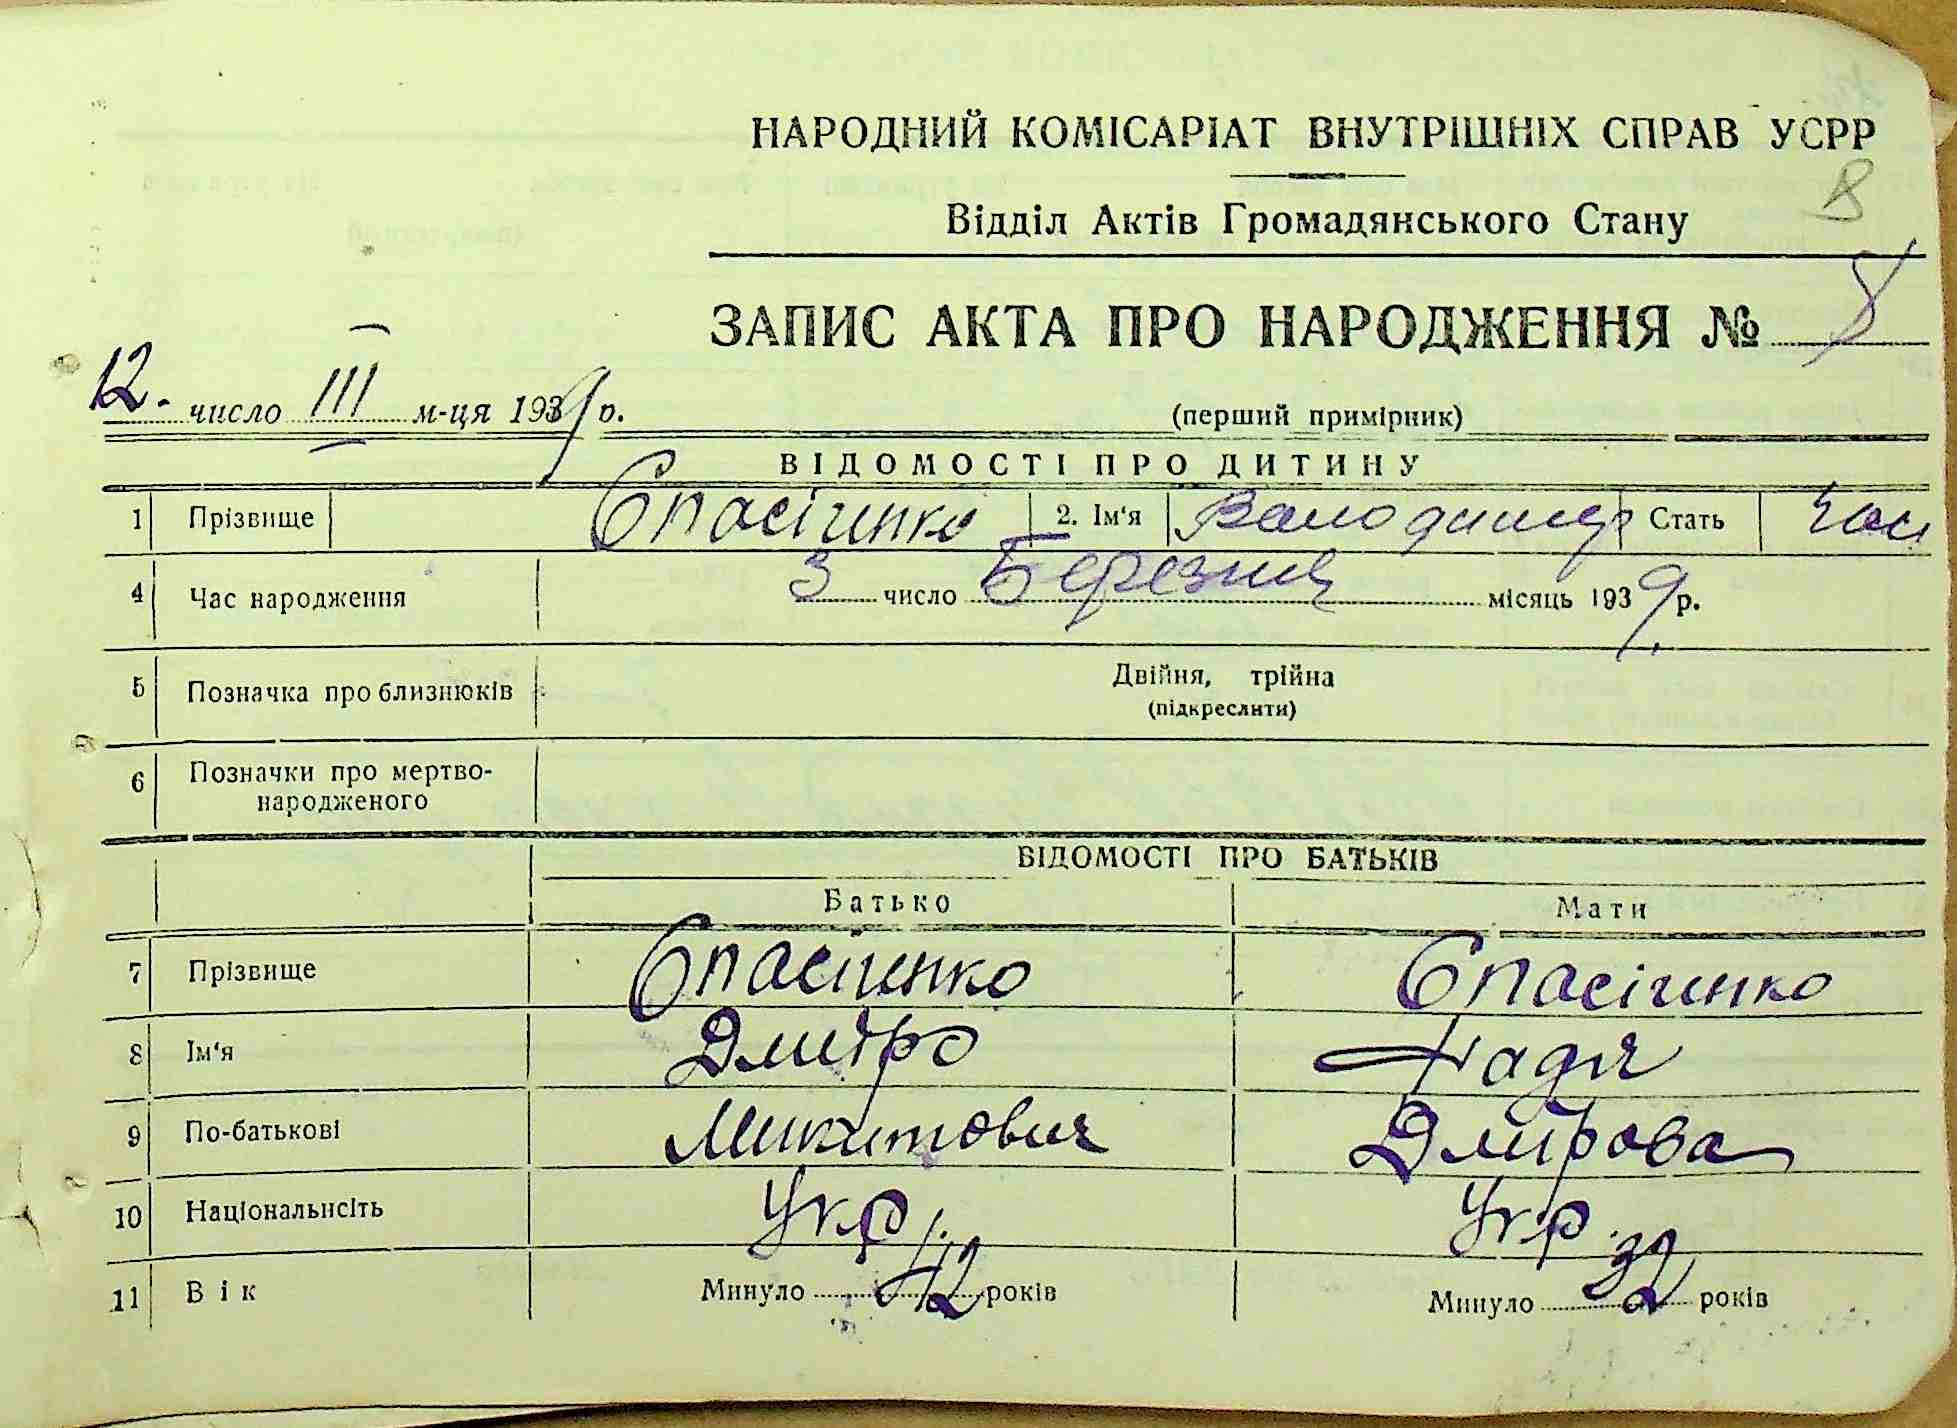 НАРОДНИЙ КОМІСАРІАТ ВНУТРІШНІХ СПРАВ УСРР
8
Відділ Актів Громадянського Стану
ЗАПИС АКТА ПРО НАРОДЖЕННЯ № 8
12. число III м-ця 1939 р.
(перший примірник)
ВІДОМОСТІ ПРО ДИТИНУ
1 Прізвище Спасіченко 2. Ім'я Володимир Стать чол
4 Час народження 3 число Березня місяць 1939 р.
5 Позначка про близнюків Двійня, трійна
(підкреслити)
6 Позначки про мертво-
народженого
ВІДОМОСТІ ПРО БАТЬКІВ
Батько Мати
7 Прізвище Спасіченко Спасіченко
8 Ім'я Дмитро Надія
9 По-батькові Микитович Дмитрова
10 Національнсіть Укр. Укр.
11 Вік Минуло 42 років Минуло 32 років